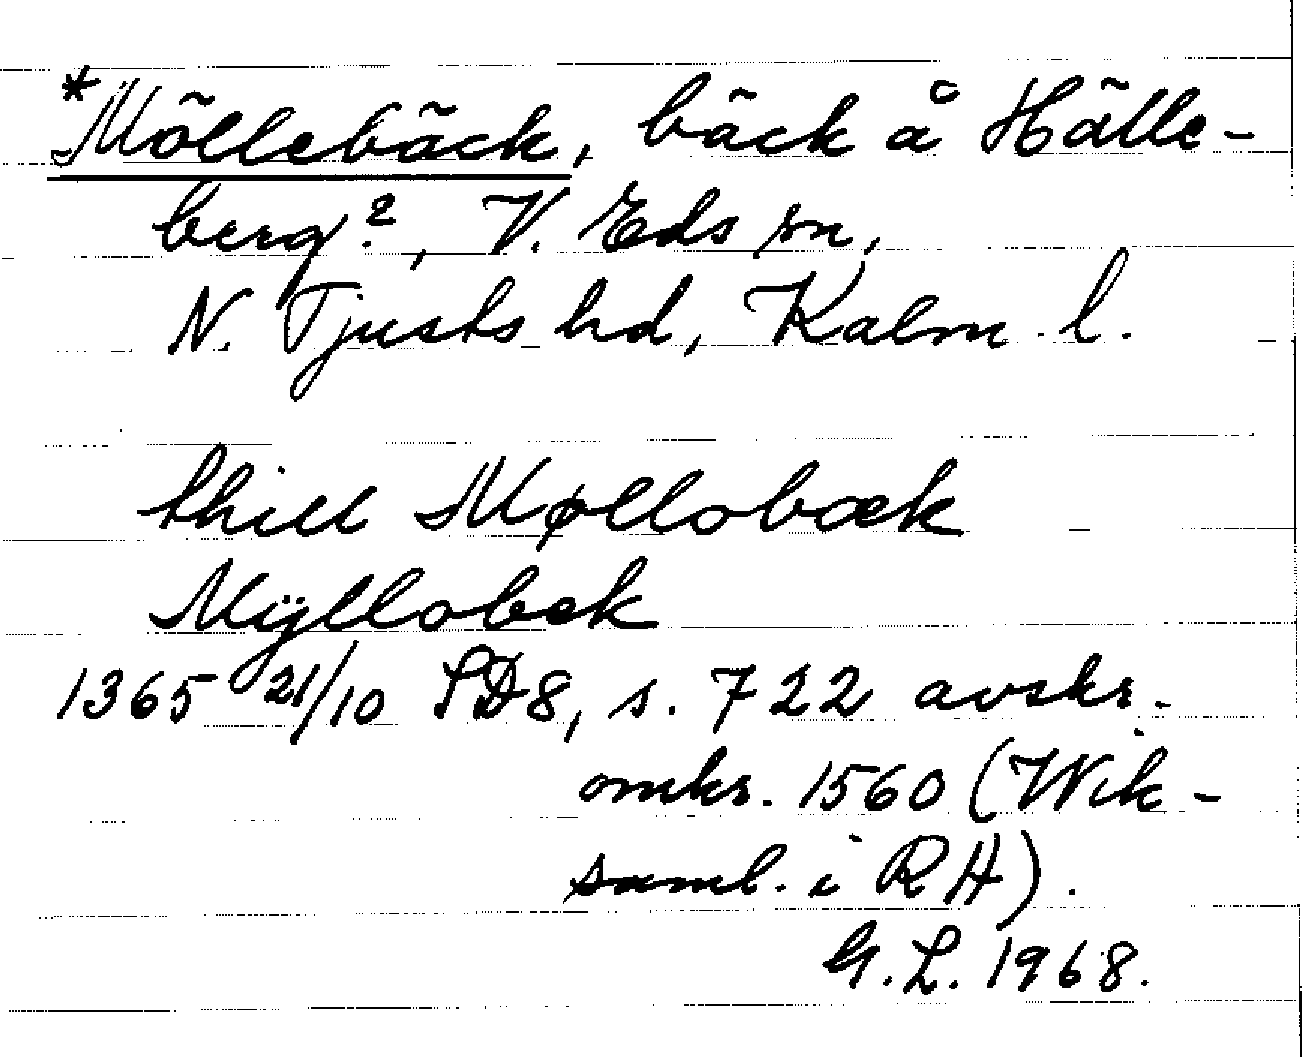 *Möllebäck, bäck å Hälle-
berg?, V. Eds sn,
N. Tjusts hd, Kalm. l.
thill Møllobæk
Mÿllobek
1365 21/10 SD8, s. 722 avskr.
omkr. 1560 (Wik-
saml. i RA).
G.L. 1968.